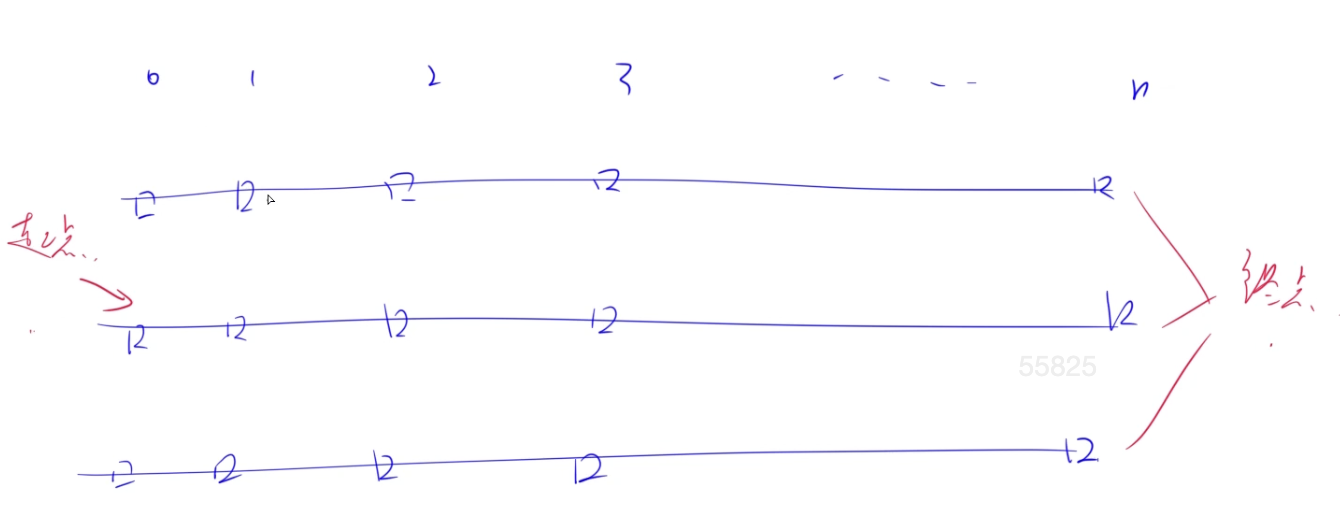 0 1 2 3 - - - - n
12 12 12 12 12
起点..
12 12 12 12 12
终点.
55825
12 12 12 12 12